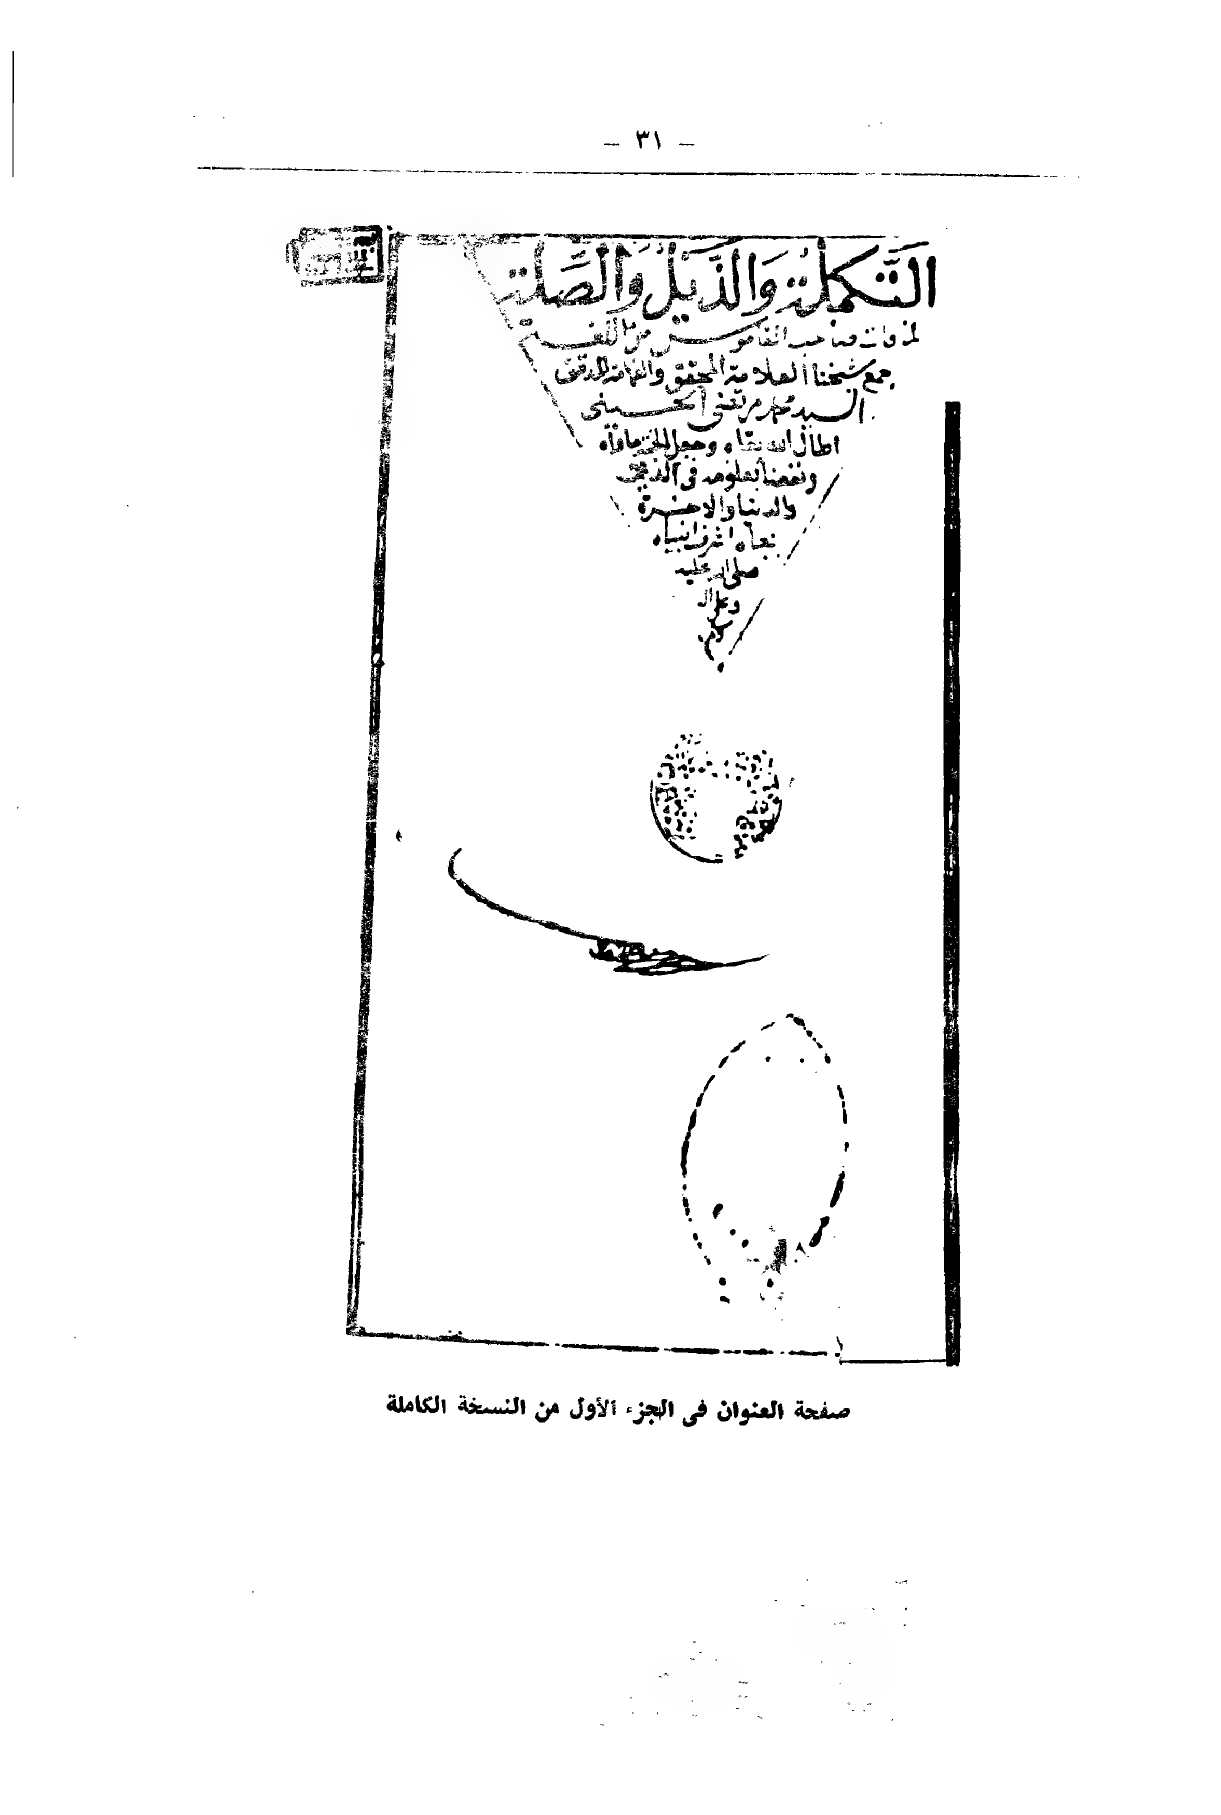 – ٣١ –
التَّكملة وَالذَّيلُ وَالصِّلة
لما فات صاحب القاموس من اللغة
جمع شيخنا العلامة المحقق والفهامة المدقق
السيد محمد مرتضى الحسيني
اطال الله بقاه وجعل الجنة مأواه
ونفعنا بعلومه في
الدنيا والاخرة
بجاه اشرف انبياه
صلى الله عليه
وعلى اله
صفحة العنوان فى الجزء الأول من النسخة الكاملة